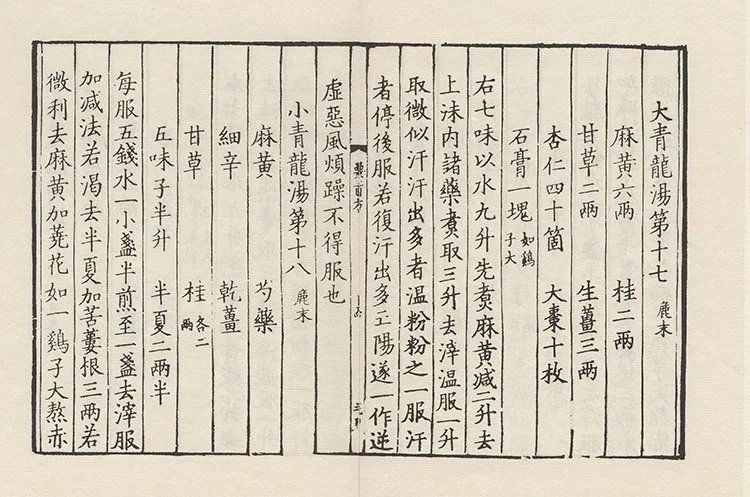 大青龍湯第十七 麄末
麻黄六兩 桂二兩
甘草二兩 生薑三兩
杏仁四十箇 大棗十枚
石膏一塊 如鷄子大
右七味以水九升先煑麻黄减二升去
上沫内諸藥煑取三升去滓温服一升
取微似汗汗出多者温粉粉之一服汗
者停後服若復汗出多亡陽遂一作逆
虚惡風煩躁不得服也
小青龍湯第十八 麄末
麻黄 芍藥
細辛 乾薑
甘草 桂各二兩
五味子半升 半夏二兩半
每服五錢水一小盞半煎至一盞去滓服
加减法若渴去半夏加苦蔞根三兩若
微利去麻黄加蕘花如一鷄子大熬赤